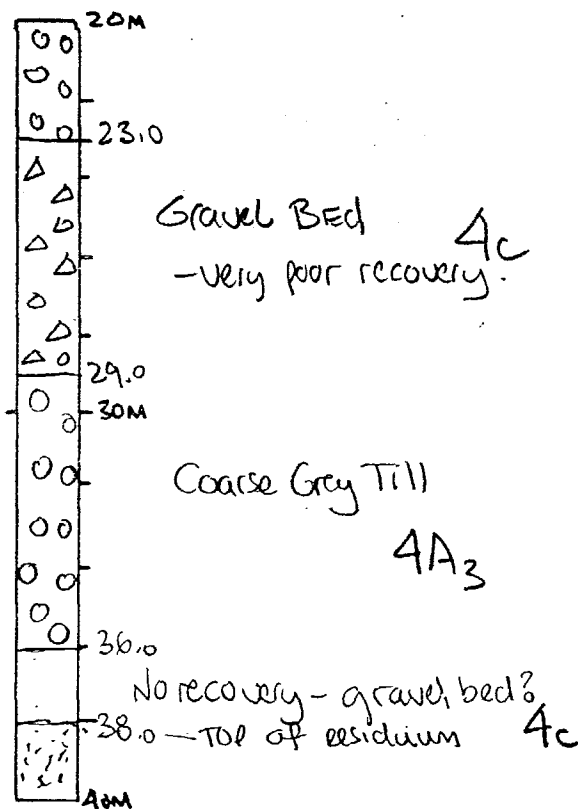 20M
23.0
Gravel BEd
-very poor recovery.
4c
29.0
30M
Coarse Grey Till
4A3
36.0
No recovery - gravel bed?
38.0 - TOP of residium
4c
40M